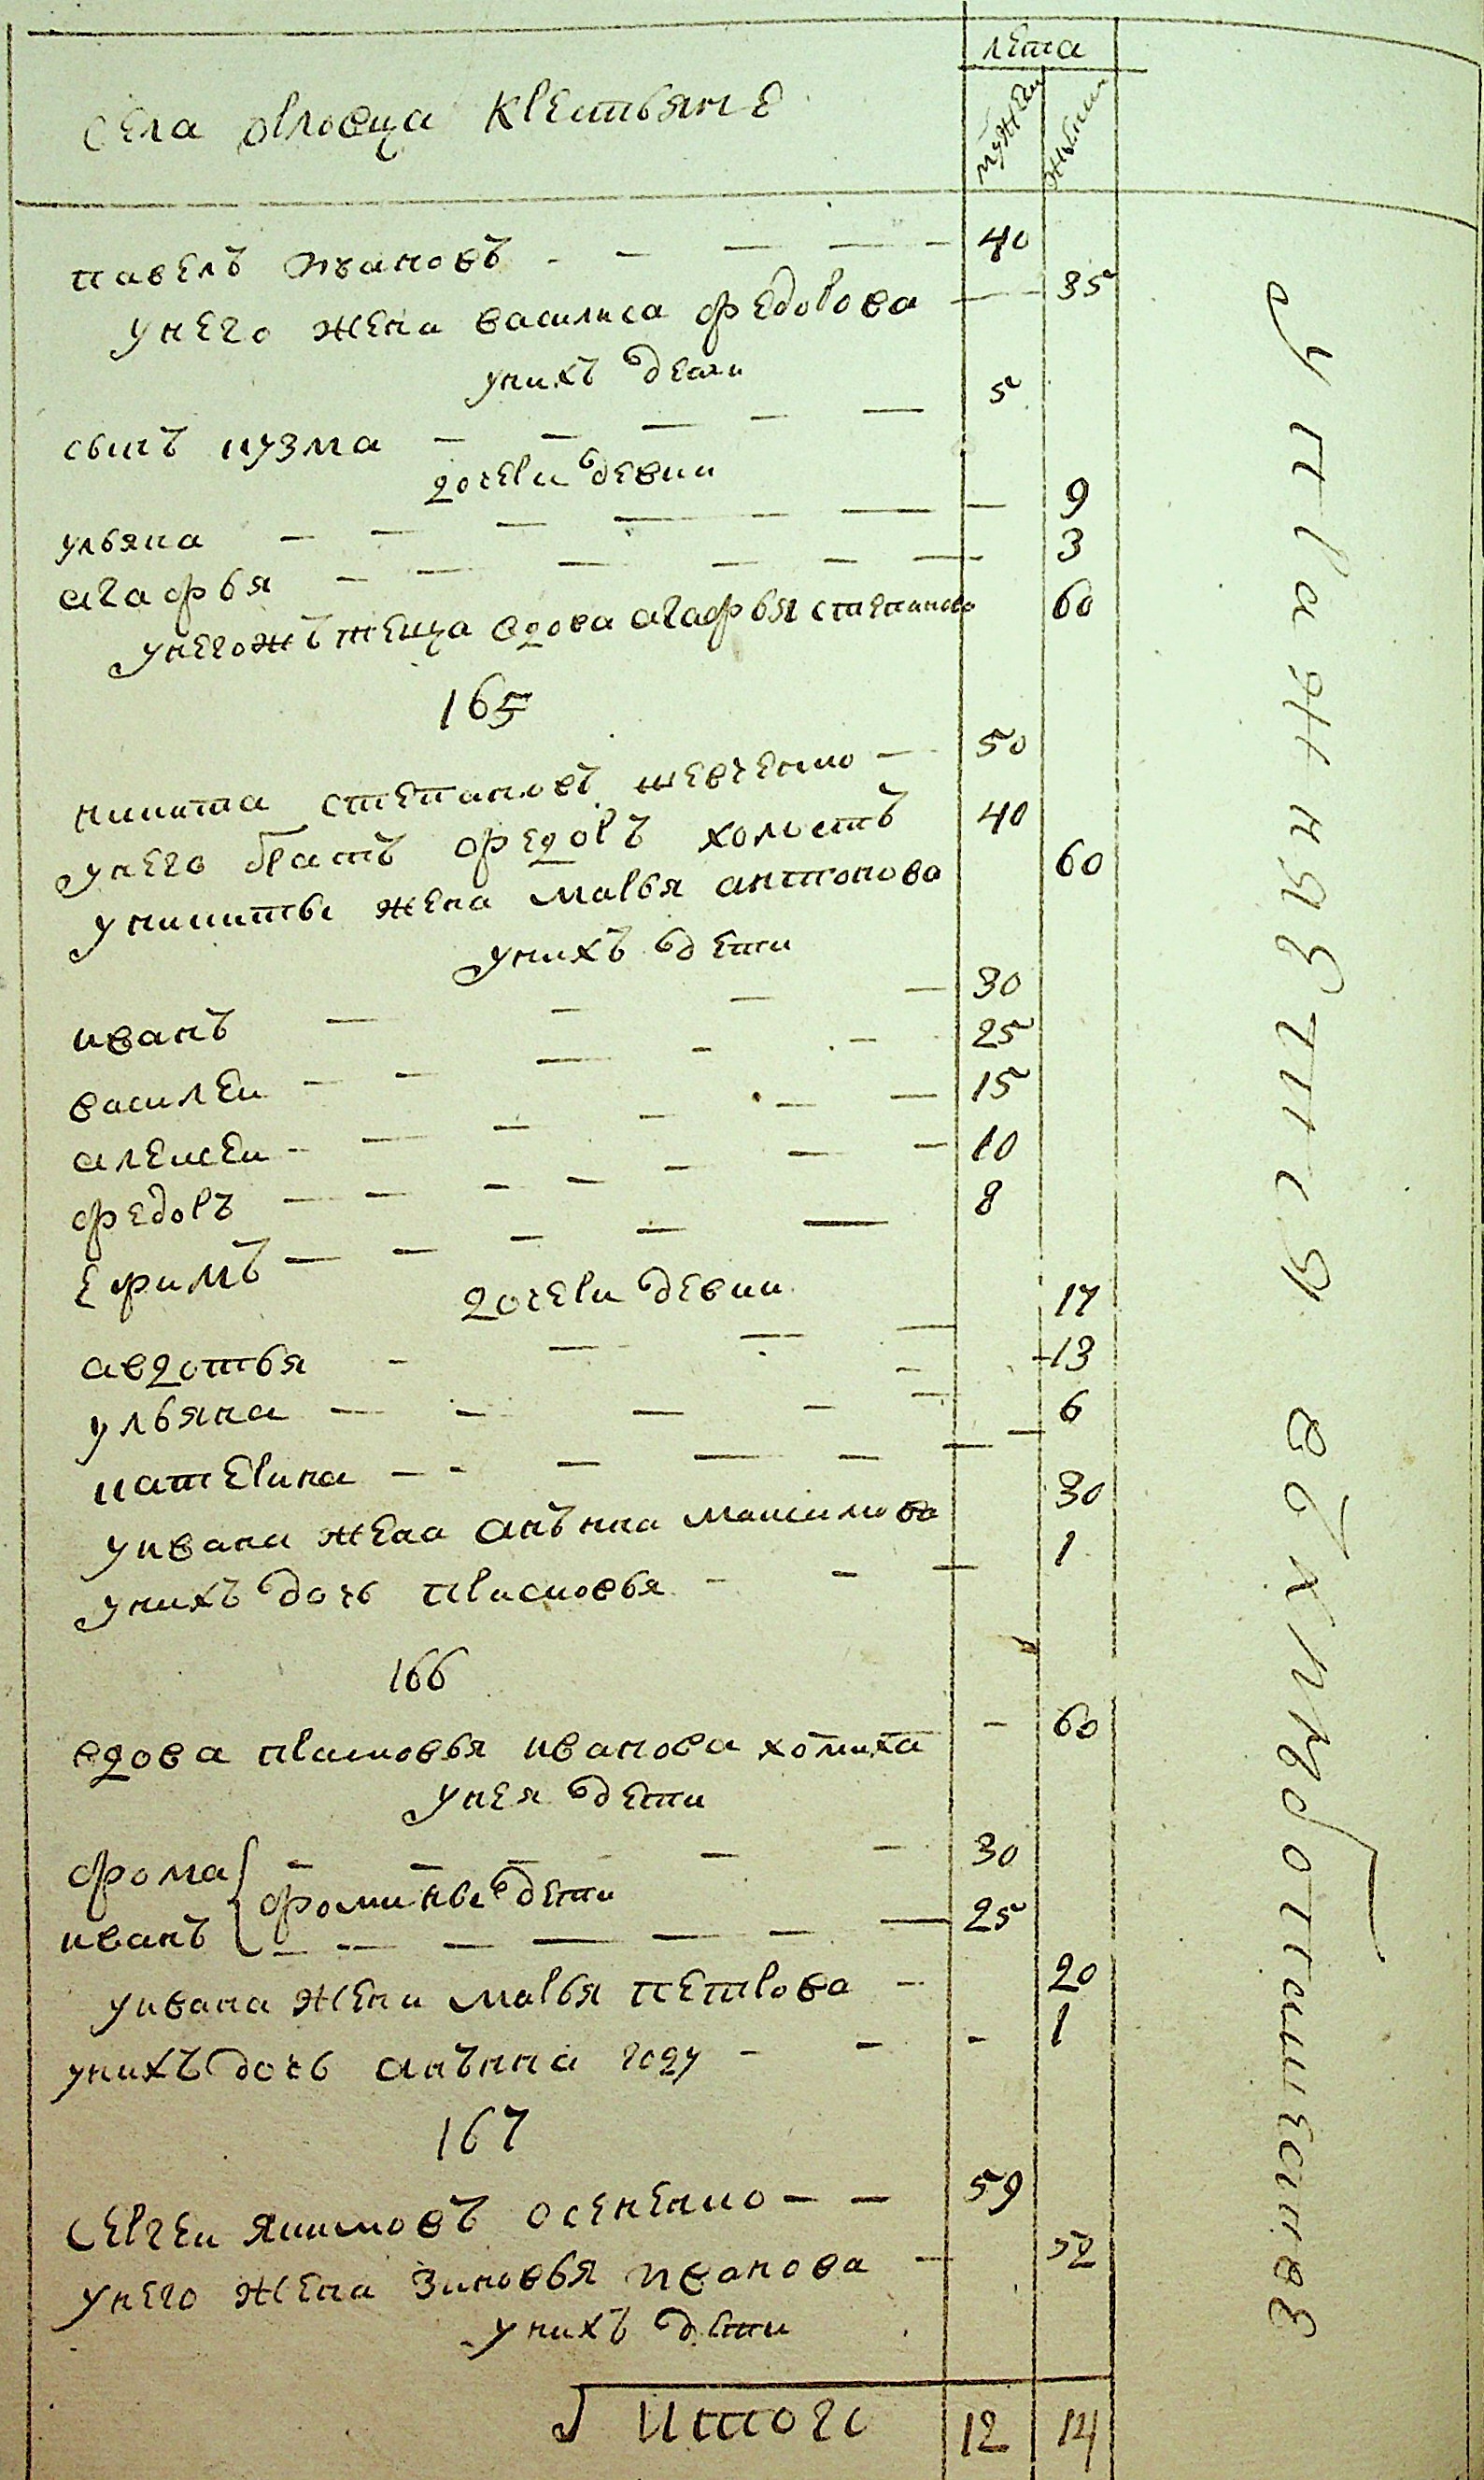 лета
села орловца крестьяне
мужеска
женска
павелъ ивановъ 40
унего жена василиса федорова 35
унихъ дети
сынъ кузма 5
дочери девки
ульяна 9
агафья 3
унегожъ теща вдова агафья степанова 60
165
никита степановъ шевченко 50
унего братъ федоръ холостъ 40
уникиты жена марья антонова 60
унихъ дети
иванъ 30
василеи 25
алексеи 15
федоръ 10
ефимъ 8
дочери девки
авдотья 17
ульяна 13
катерина 6
уивана жена анънна максимова 30
унихъ дочь прасковья 1
166
вдова прасковья иванова 60
унея дети
фома 30
фомины дети
иванъ 25
уивана жена марья петрова 20
унихъ дочь анънна году 1
167
сергеи якимовъ осененко 59
унего жена зиновья иванова 52
унихъ дети
итого 12 14